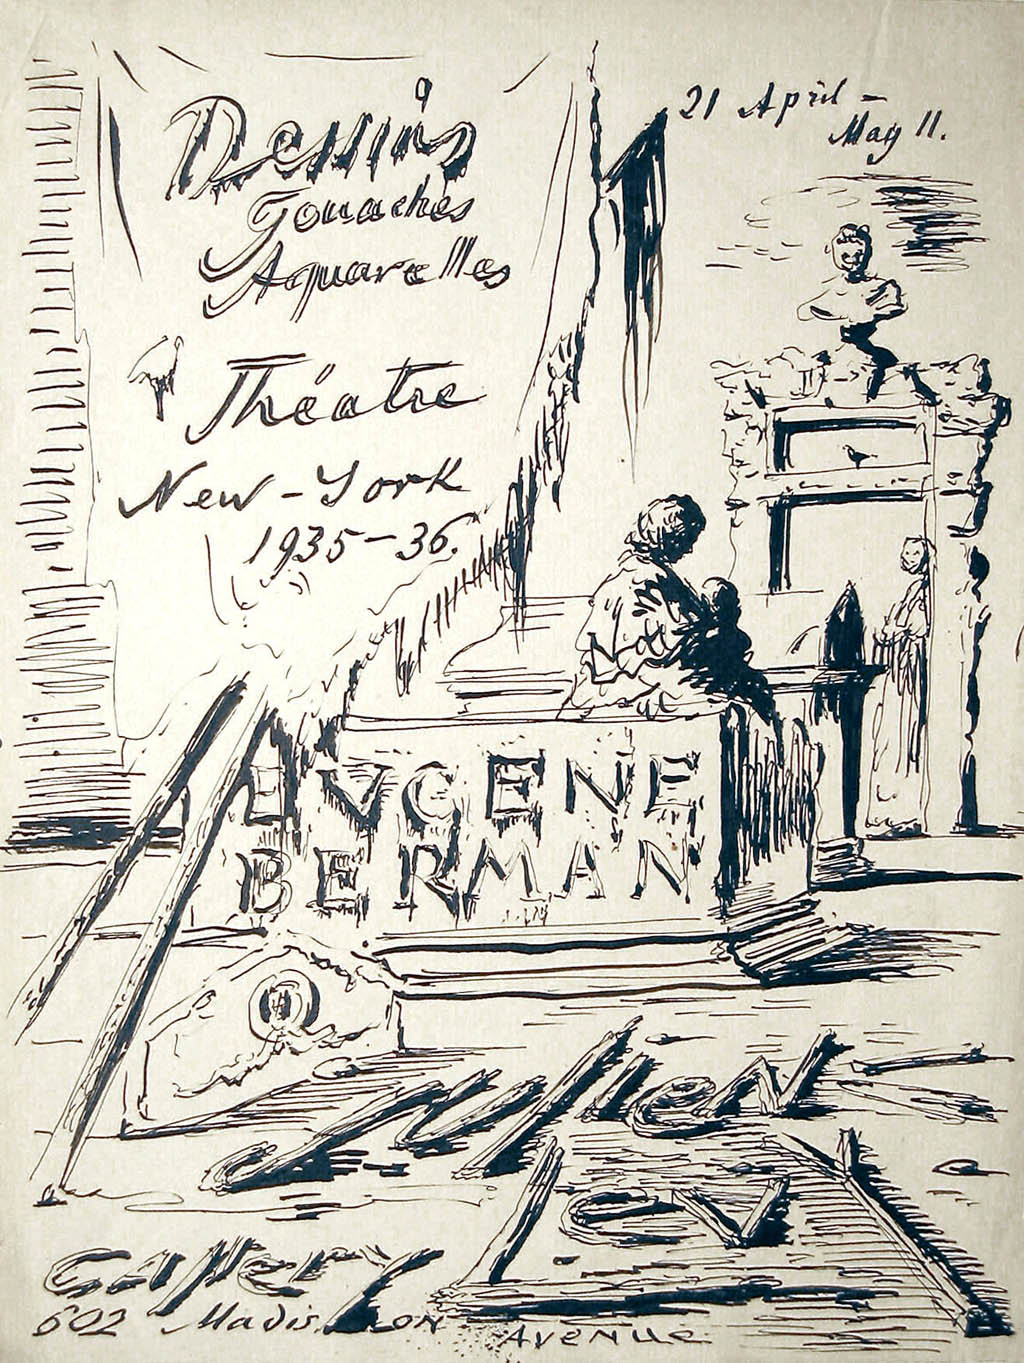 21 April –
May 11.
Dessins
Gouaches
Aquarelles
Théatre
New-York
1935-36.
EVGENE
BERMAN
Julien
Levy
Gallery
602 Madison Avenue